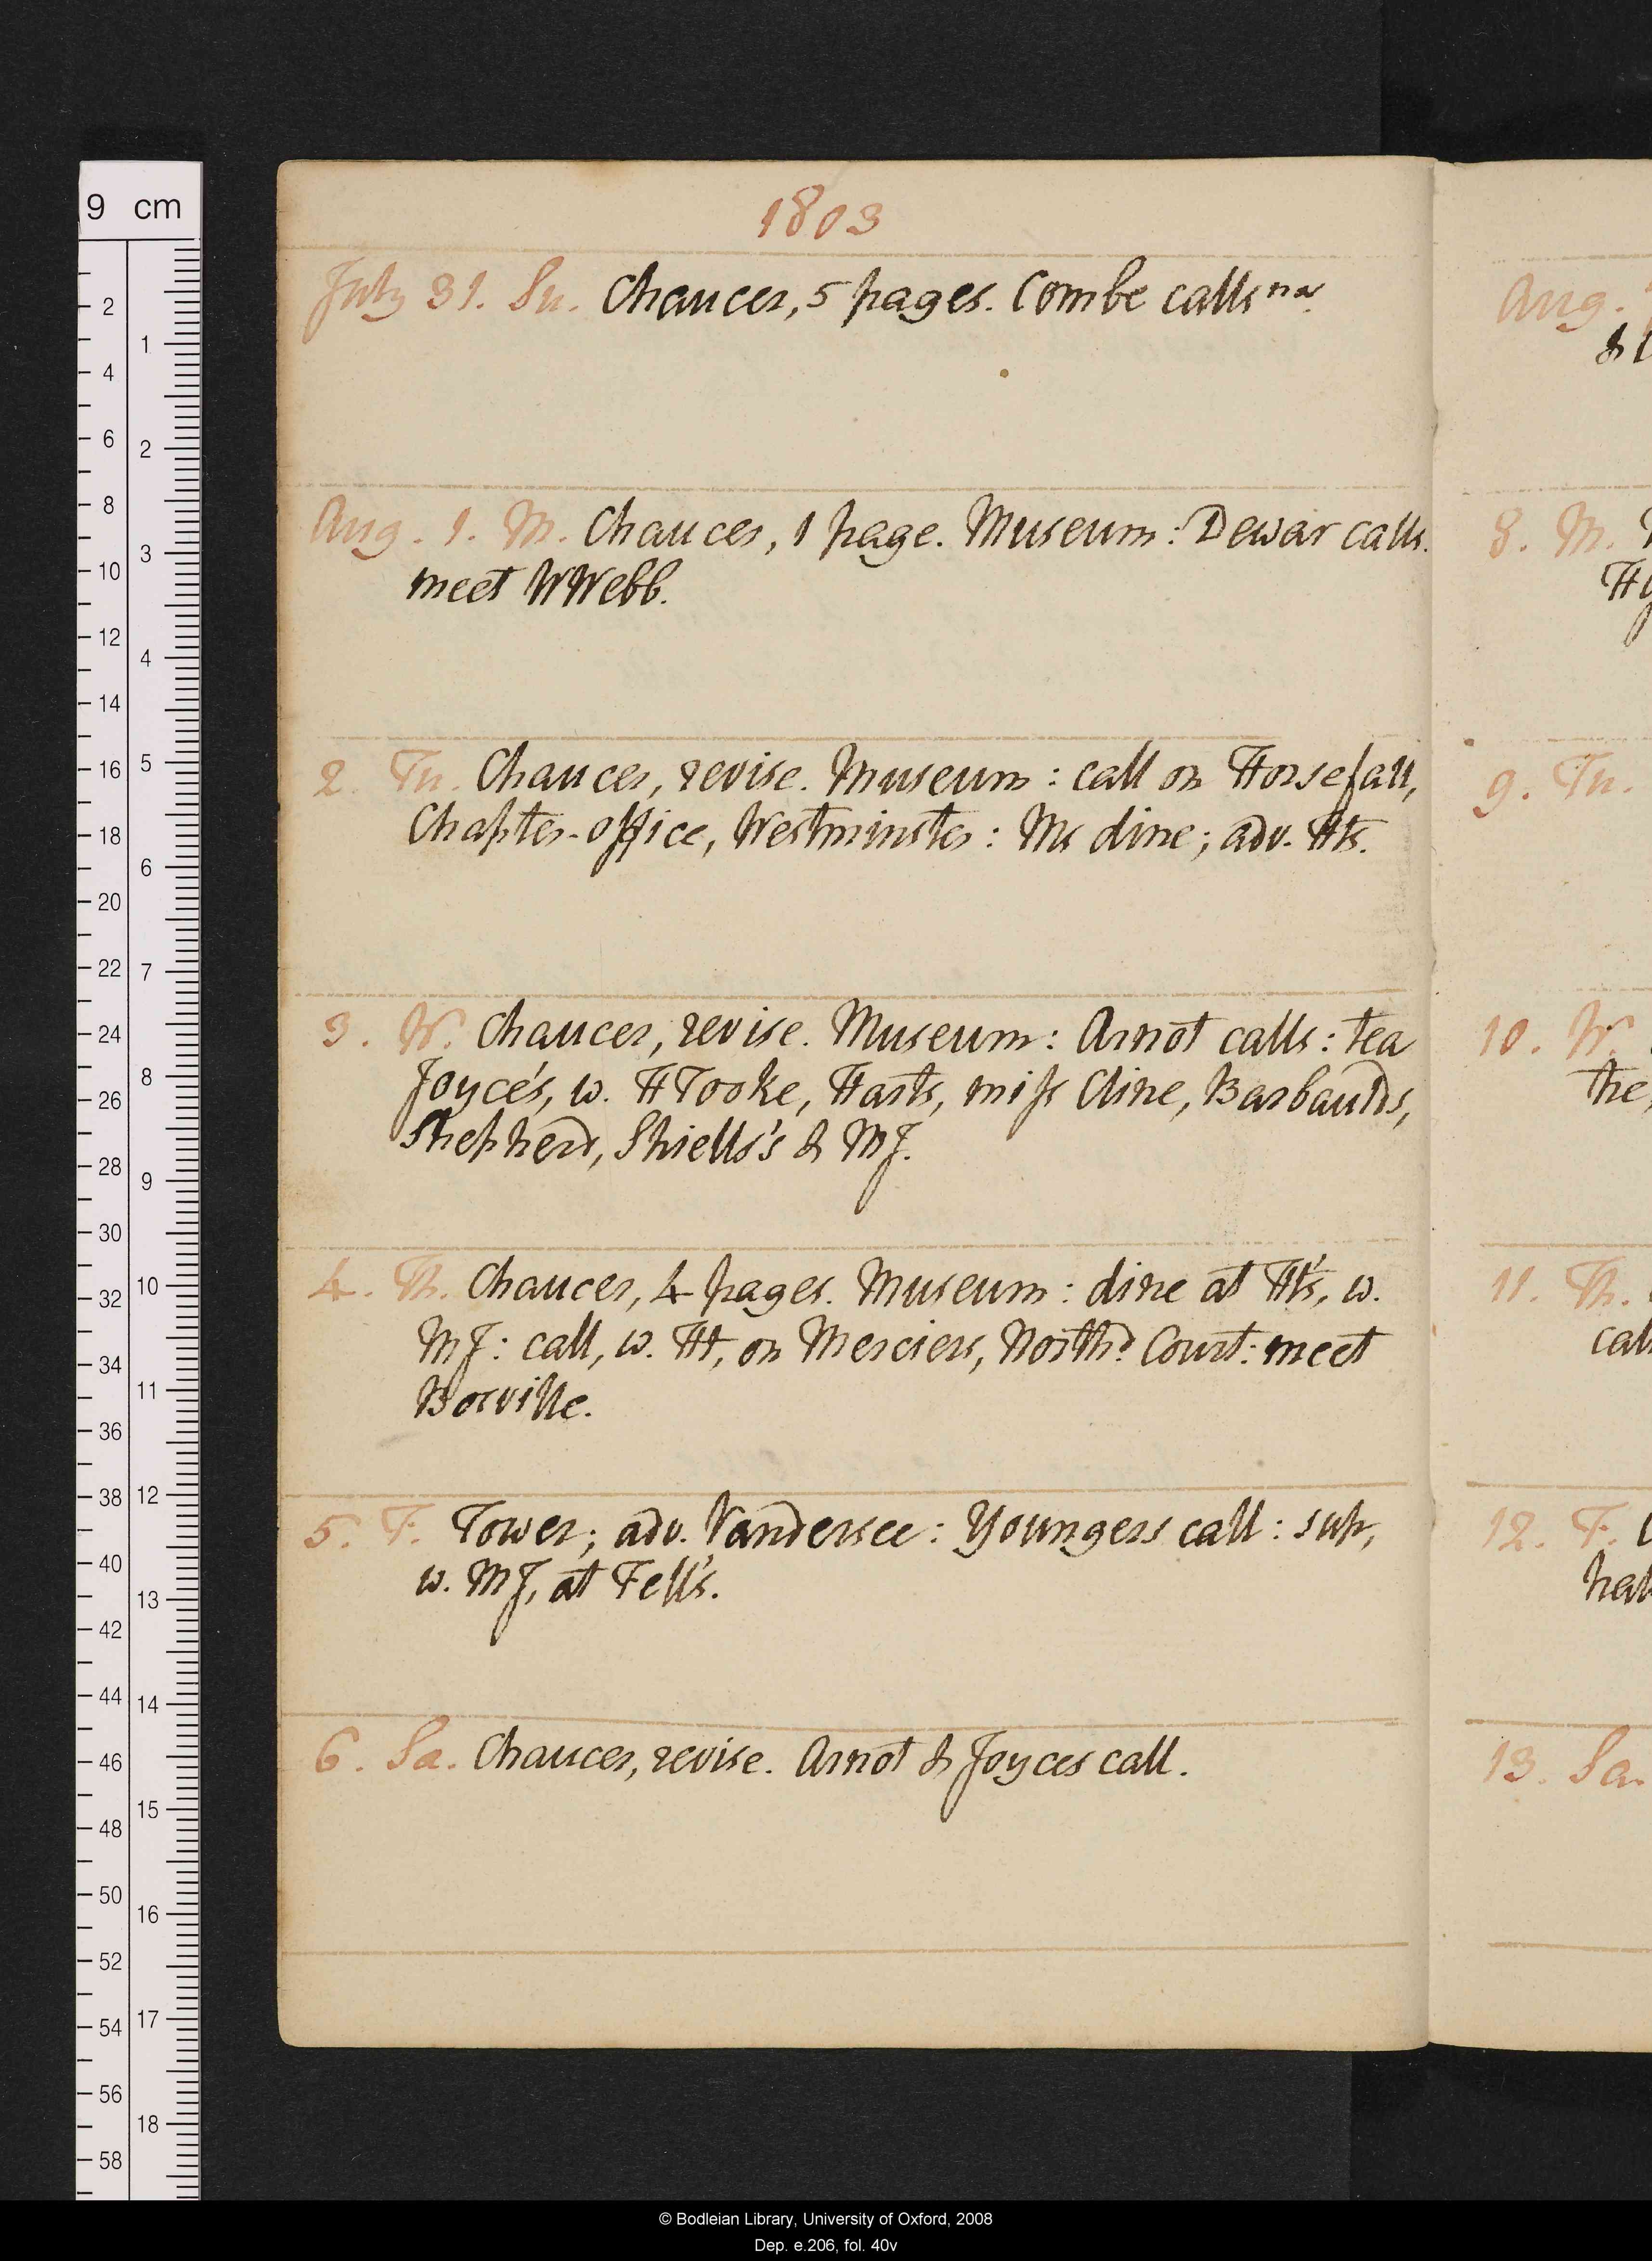 1803
July 31. Su. Chaucer, 5 pages. Combe calls na.
Aug. 1. M. Chaucer, 1 page. Museum: Dewar calls.
meet WWebb.
2. Tu. Chaucer, revise. Museum: call on Horsefall,
Chapter-office, Westminster: Ms dine; adv. Hts.
3. W. Chaucer, revise. Museum: Arnot calls: tea
Joyce's, w. HTooke, Harts, miss Cline, Barbaulds,
Shepherd, Shiells's & MJ.
4. Th. Chaucer, 4 pages. Museum: dine at Ht's, w.
MJ: call, w. Ht, on Merciers, Northd Court: meet
Bosville.
5. F. Tower; adv. Vandersee: Youngers call: sup,
w. MJ, at Fell's.
6. Sa. Chaucer, revise. Arnot & Joyces call.
Aug.
&
8. M.
9. Tu.
10. W.
the
11. Th.
call
12. F.
13. Sa.
9 cm
2
4
6
8
10
12
14
16
18
20
22
24
26
28
30
32
34
36
38
40
42
44
46
48
50
52
54
56
58
1
2
3
4
5
6
7
8
9
10
11
12
13
14
15
16
17
18
© Bodleian Library, University of Oxford, 2008
Dep. e.206, fol. 40v